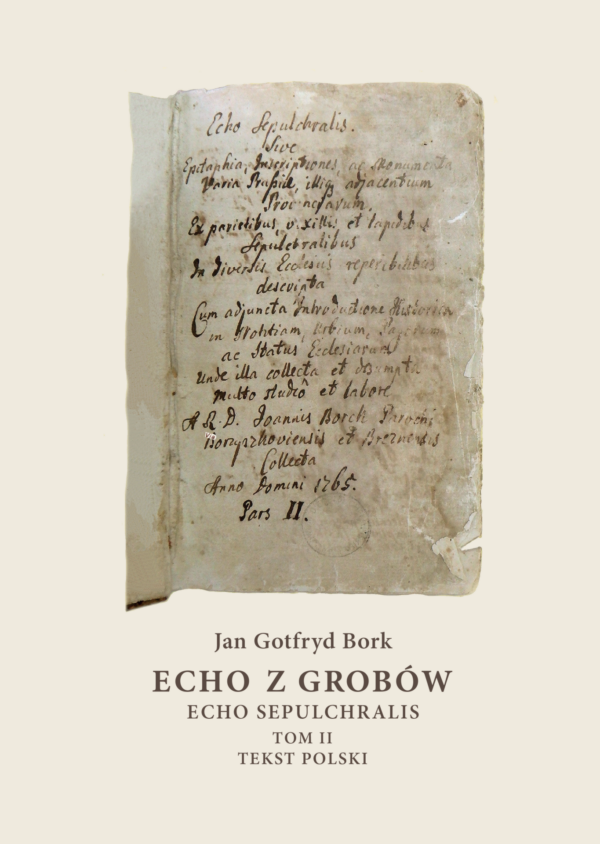 Echo Sepulchralis.
Sive
Epitaphia, Inscriptiones, ac Monumenta
Varia Prussiæ, illiq; adjacentium
Provinciarum,
Ex parietibus, vexillis et lapidibus
Sepulchralibus
In diversis Ecclesiis reperibilibus
descripta
Cum adjuncta Introductione Historica
in Notitiam, Urbium,
ac Status Ecclesiarum
unde illa collecta et desumpta
multo studiô et labore
A R. D. Joannis Borck Parochi
Borzyszkoviensis et Breznensis
Collecta
Anno Domini 1765.
Pars II.
Jan Gotfryd Bork
ECHO Z GROBÓW
ECHO SEPULCHRALIS
TOM II
TEKST POLSKI